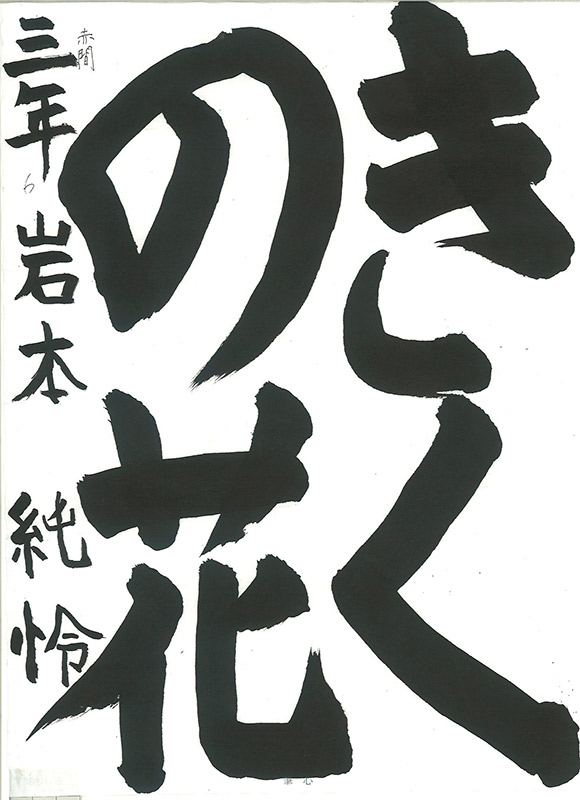 きく
の花
三年 岩本 純怜
赤間